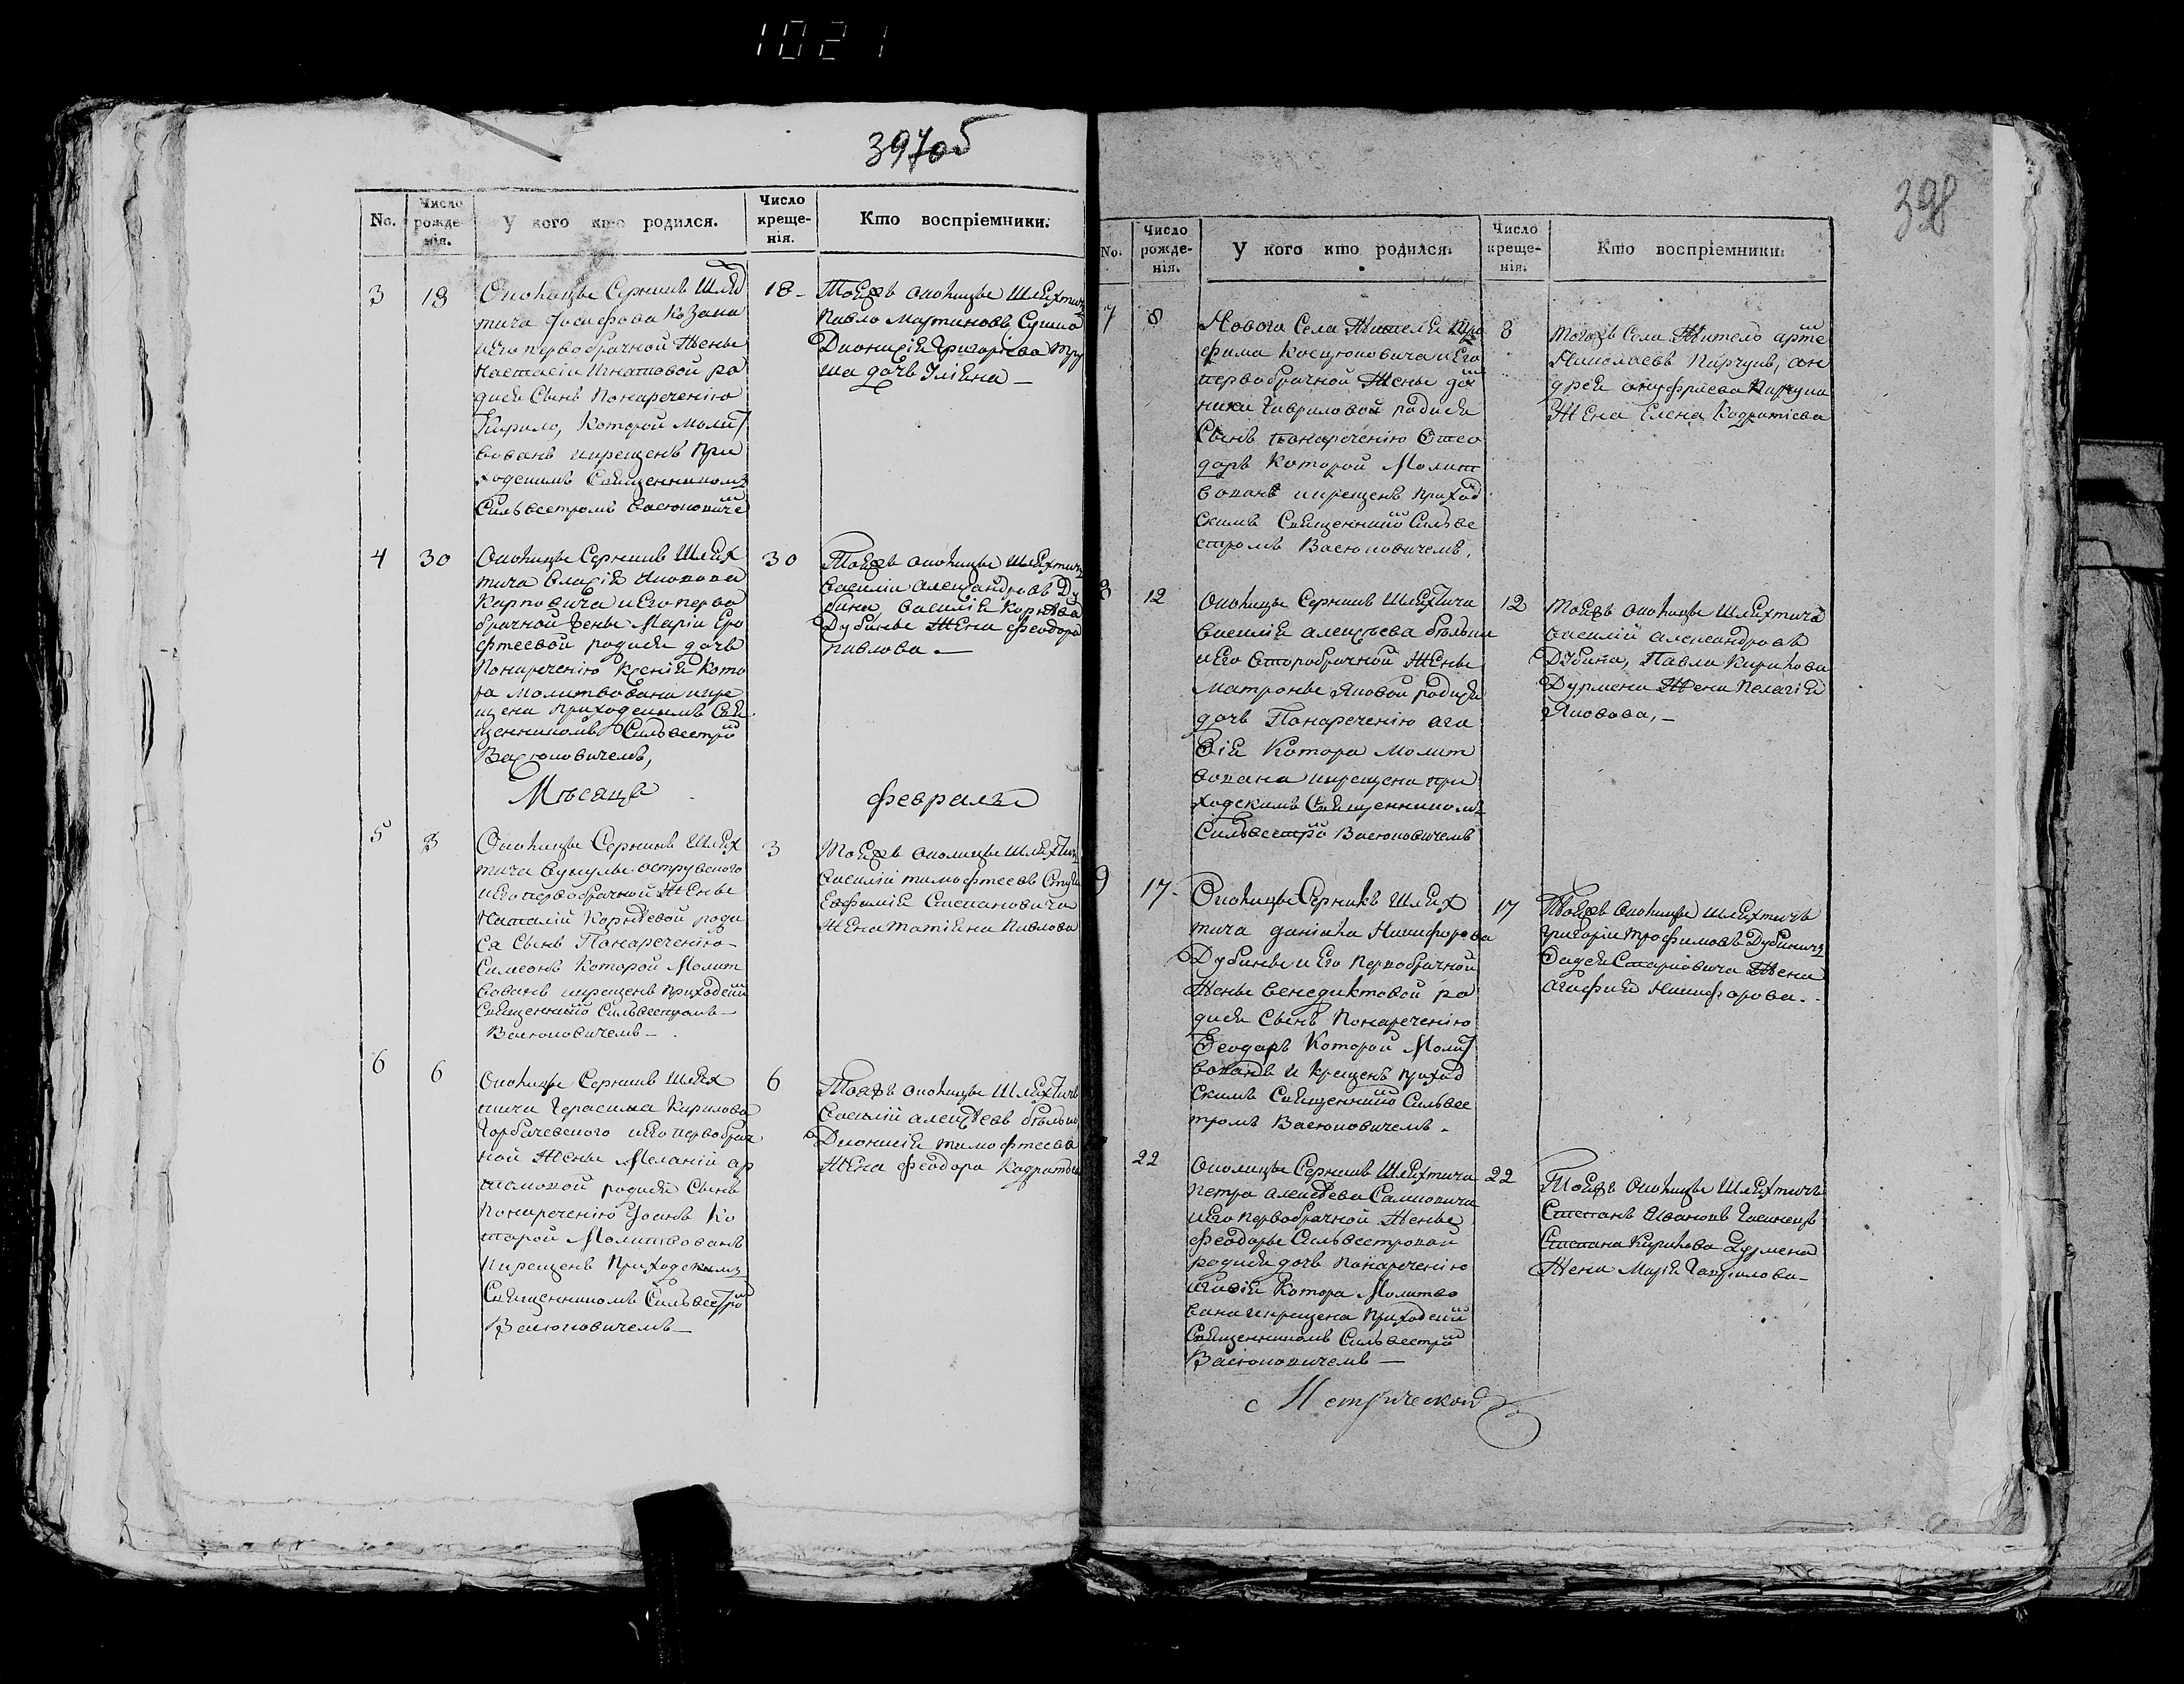 1021
397об
No.
Число рожде- нія.
У кого кто родился.
Число креще- нія.
Кто воспріемники.
3 18
Околицы Серникъ Шлях
тича Іосифова Козака
и Его первобрачной Жены
Настасіи Игнатовой ро
дися Сынъ Понареченію
Кирило, Которой Молит
вованъ икрещенъ При
ходскимъ Священникомъ
Сильвестромъ Васюковиче
18
Тоеяжъ околицы Шляхтичъ
Павло Мартиновъ
Діонисія Григоріева
дочь Уліяна
4 30
Околицы Серникъ Шлях
тича Власія Яковова
Карповича и Его перво
брачной Жены Маріи Еро
фтеевой родися дочь
Понареченію Ксенія Кото
ра молитвована икре
щена приходскимъ Свя
щенникомъ Сильвестро
Васюковичемъ,
30
Тоеяжъ околицы Шляхтичъ
Василій Александровъ Ду
бина, Василія Корнѣва
Дубины Жена Феодора
Павлова
Мѣсяца Февраля
5 3
Околицы Серникъ Шлях
тича Вукулы Островского
и Его первобрачной Жены
Наталіи Корнѣевой роди
ся Сынъ Понареченію
Симеонъ Которой Молит
вованъ икрещенъ Приходски
Священнико Сильвестромъ
Васюковичемъ
3
Тоеяжъ околицы Шляхтичъ
Василій тимофтеевъ
Евфимія Степановича
Жена Татіяна Павлова
6 6
Околицы Серникъ Шлях
тича Герасима Кирилова
Горбачевского и Его первобрач
ной Жены Меланіи ар
темовой родися Сынъ
Понареченію Іоанъ Ко
торой Молитвованъ
икрещенъ Приходскимъ
Священникомъ Сильвестро
Васюковичемъ
6
Тояжъ околицы Шляхтичъ
Василій алексѣевъ
Діонисія тимофтеева
Жена Феодора
398
No.
Число рожде- нія.
У кого кто родился.
Число креще- нія.
Кто воспріемники.
7 8
Нового Села Жителя Тро
фима Косцюковича и Его
первобрачной Жены до
ники Гавриловой родися
Сынъ понареченію Өео
доръ Которой Молит
вованъ икрещенъ приход
скимъ Священнико Сильве
стромъ Васюковичемъ.
8
Тогожъ Села Житель арте
Николаевъ Пирчукъ, ан
дрея ануфріева
Жена Елена Кодратіева
8 12
Околицы Серникъ Шляхтича
Василія алексѣева
и Его второбрачной Жены
Матроны Яковой родися
дочь Понареченію ага
өія Котора молит
вована икрещена при
ходскимъ Священникомъ
Сильвестро Васюковичемъ
12
Тояжъ околицы Шляхтичъ
Василій александровъ
Дубина, Павла Кирилова
Дурмена Жена Пелагія
Яковова,
9 17
Околицы Серникъ Шлях
тича даніила Никифорова
Дубины и Его первобрачной
Жены Венедиктовой ро
дися Сынъ Понареченію
Өеодоръ Которой Молит
вованъ и крещенъ приход
скимъ Священнико Сильвес
тромъ Васюковичемъ.
17
Тоеяжъ околицы Шляхтичъ
Григорій Трофимовъ
Өадея Жена
агафія Никифорова.
22
Околицы Серникъ Шляхтича
Петра алексѣева
и Его первобрачной Жены
Феодоры Сильвестровой
родися дочь понареченію
Котора Молитво
вана икрещена Приходски
Священникомъ Сильвестро
Васюковичемъ
22
Тоеяжъ околицы Шляхтичъ
Степанъ Ивановъ
Степана Кирилова Дурмена
Жена Марія Гаврилова
Метрической